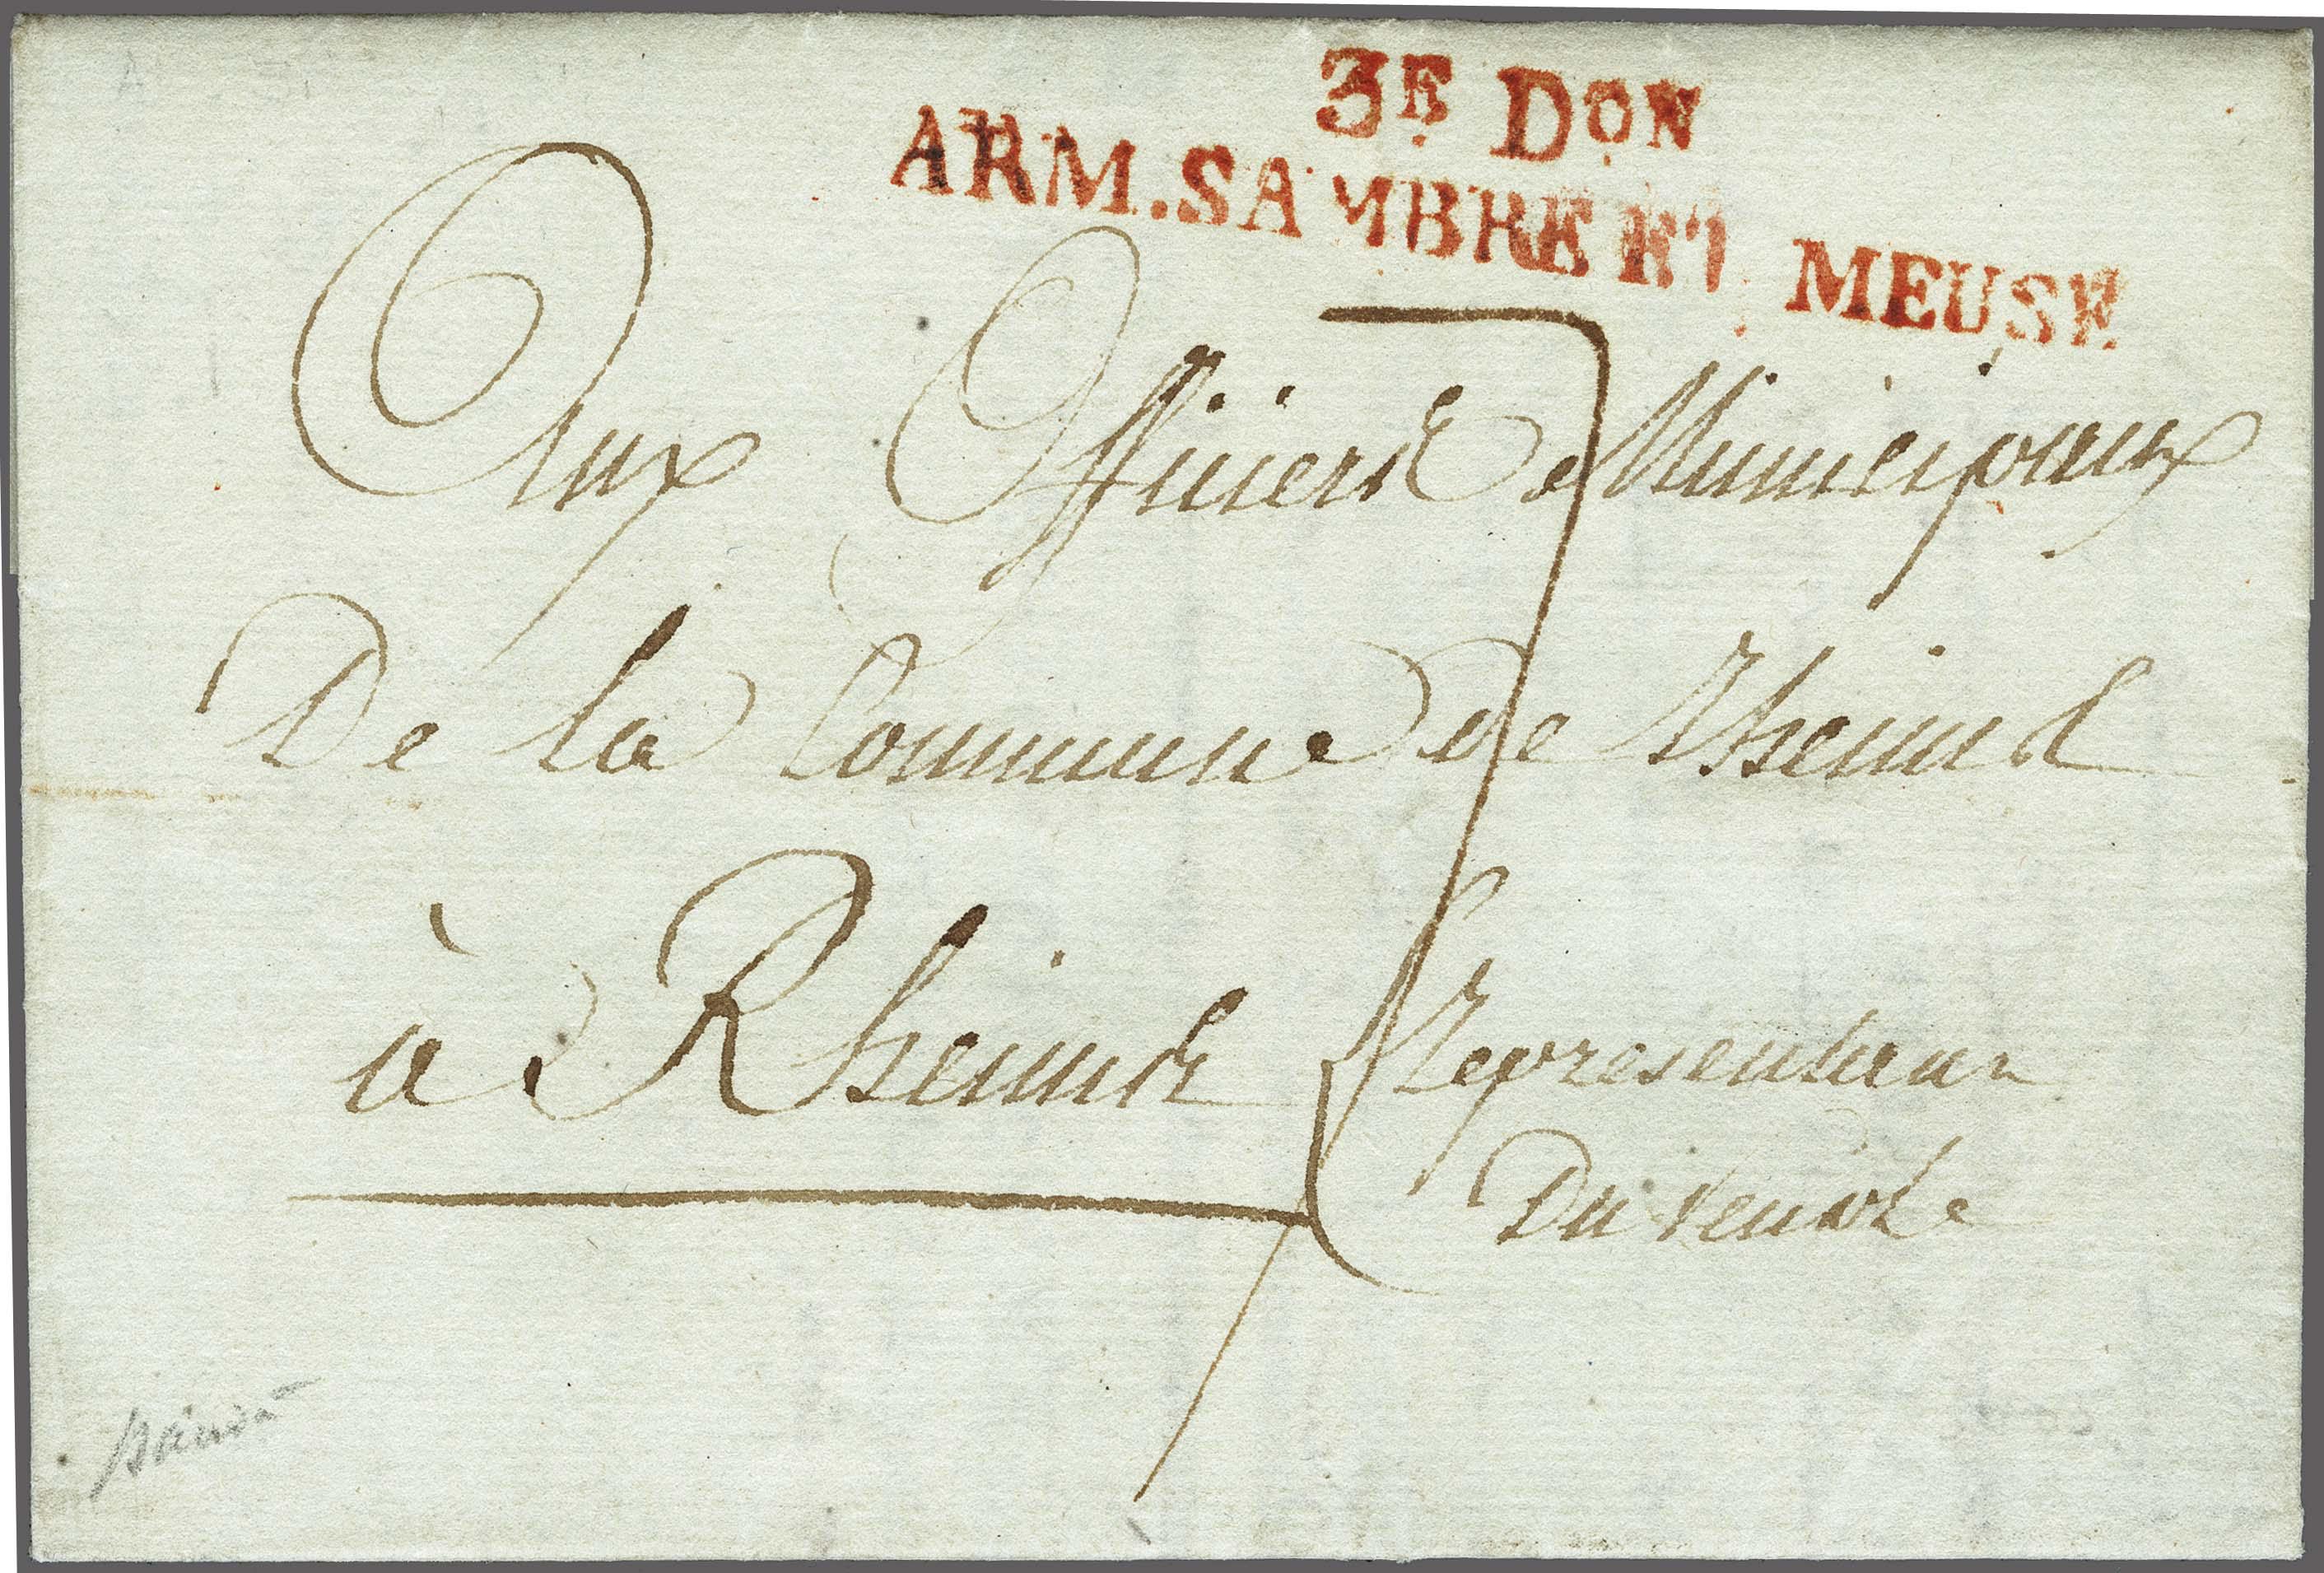 3E DON
ARM.SAMBRE ET MEUSE
Aux Officiers Municipaux
De la Commune de Rheims
à Rheims
7
Representant
Du peuple